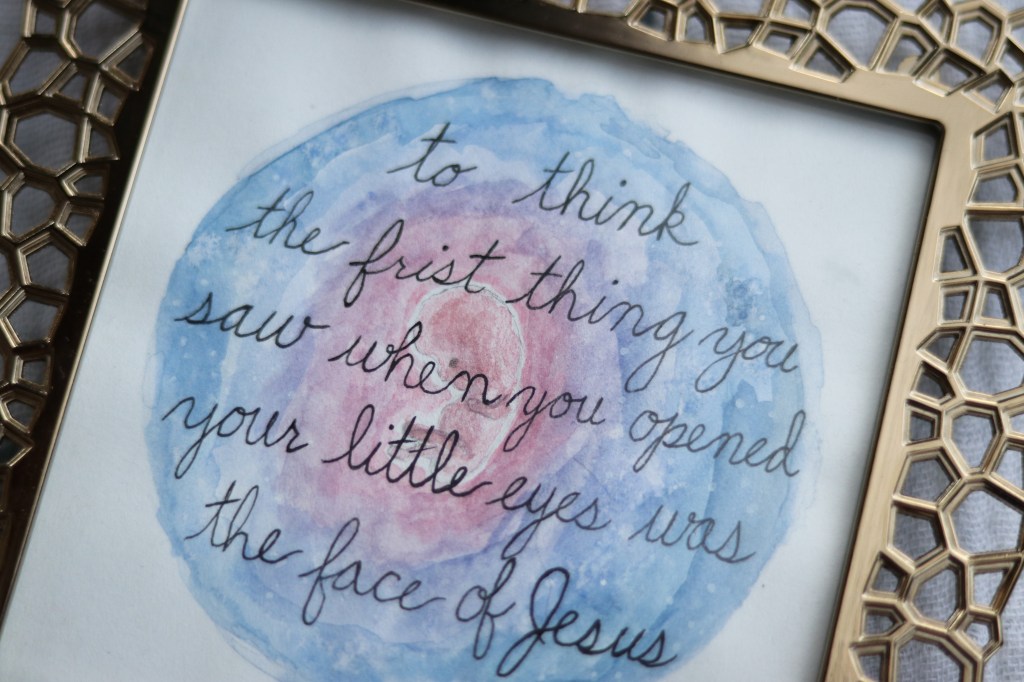 to think
the frist thing you
saw when you opened
your little eyes was
the face of Jesus